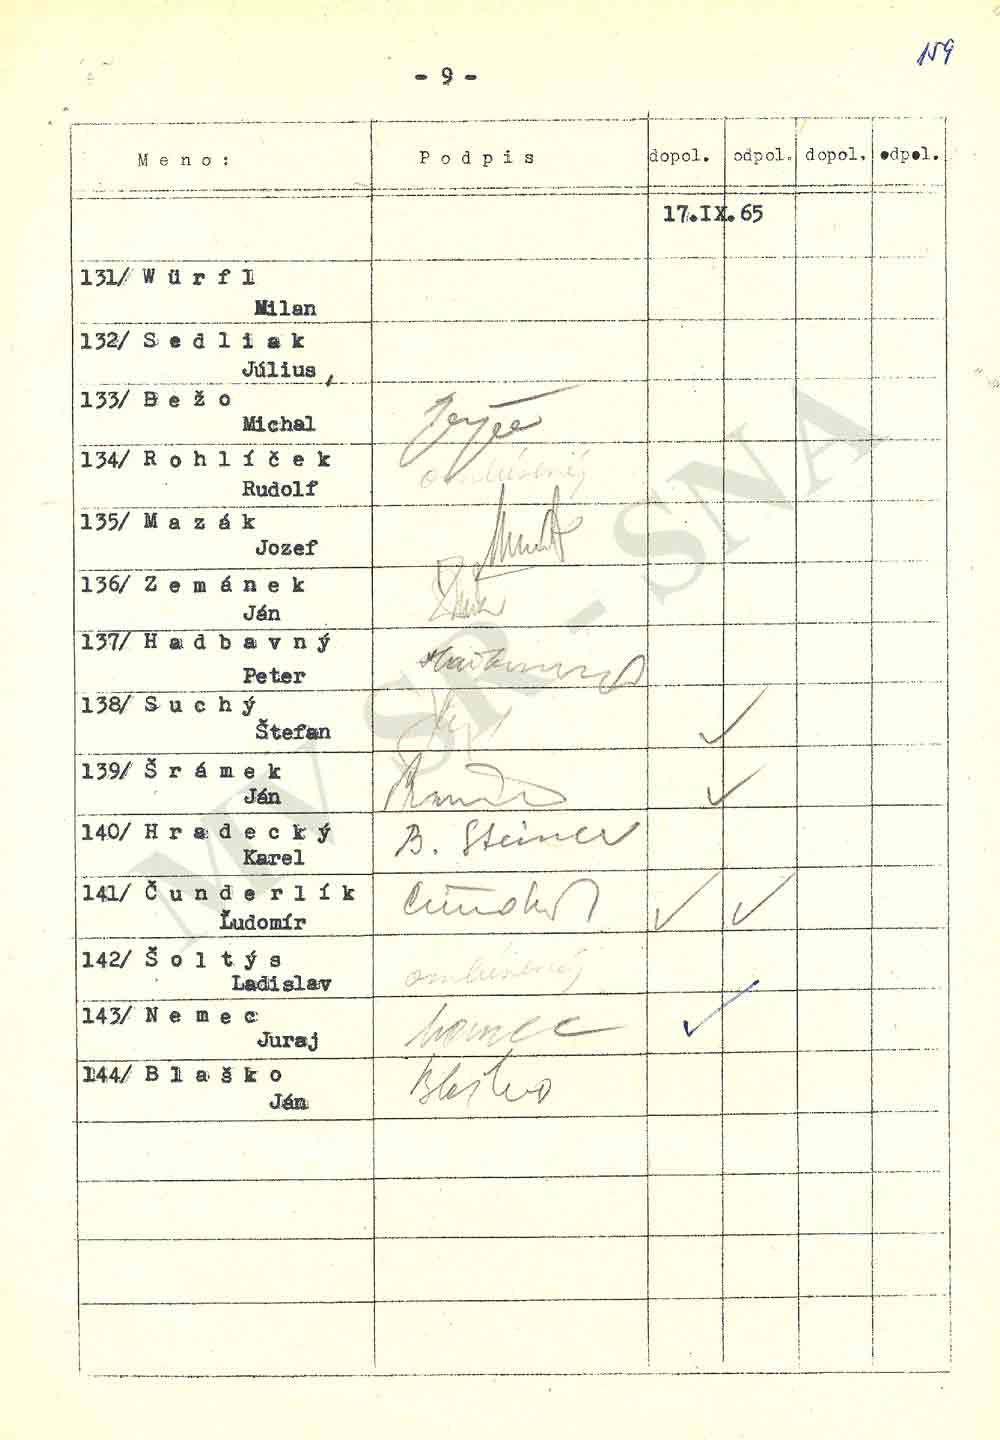 159
- 9 -
Meno: Podpis dopol. odpol. dopol. odpol.
17.IX.65
131/ Würfl
Milan
132/ Sedliak
Július,
133/ Bežo
Michal
134/ Rohlíček ospravedlnený
Rudolf
135/ Mazák
Jozef
136/ Zemánek
Ján
137/ Hadbavný
Peter
138/ Suchý
Štefan
139/ Šrámek
Ján
140/ Hradecký B. Steiner
Karel
141/ Čunderlík
Ľudomír
142/ Šoltýs
Ladislav
143/ Nemec
Juraj
144/ Blaško Blaško
Ján
MV SR - SNA